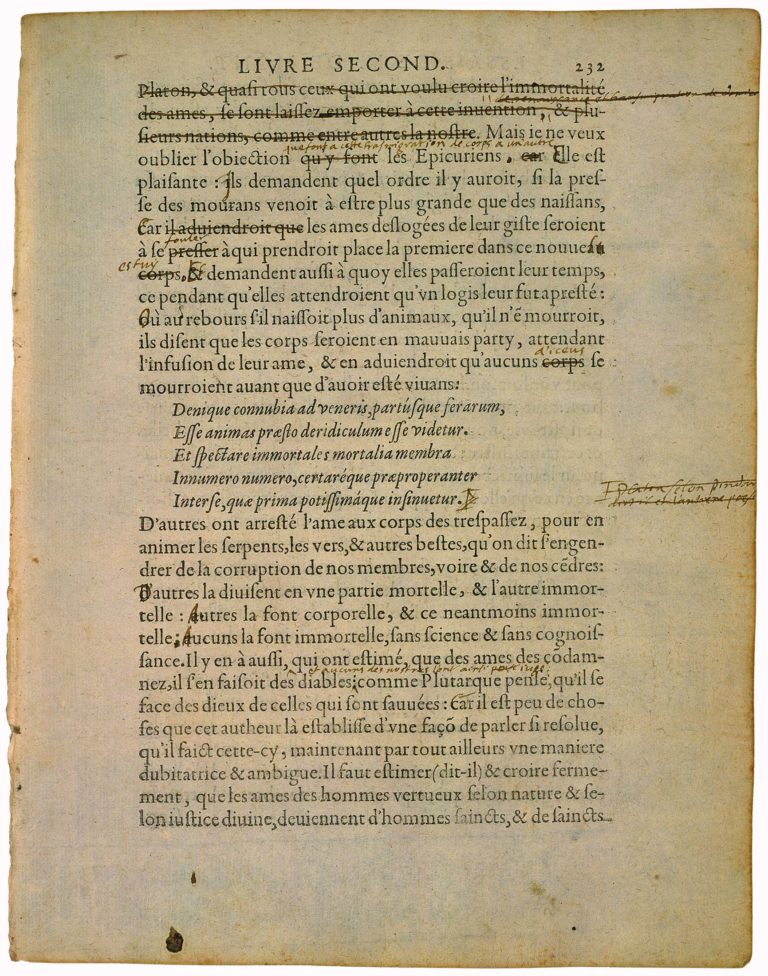 LIVRE SECOND. 232
Platon, & quaſi tous ceux qui ont voulu croire l'immortalité
des ames, ſe ſont laiſſez emporter à cette inuention, & plu-
ſieurs nations, comme entre autres la noſtre. Mais ie ne veux
que font a cette trasmigration de corps a un autre
oublier l'obiection qu'y font les Epicuriens. car Elle eſt
plaiſante : ils demandent quel ordre il y auroit, ſi la preſ-
ſe des mourans venoit à eſtre plus grande que des naiſſans,
Car il aduiendroit que les ames deſlogées de leur giſte ſeroient
fouler
à ſe preſſer à qui prendroit place la premiere dans ce nouueau
estuy
corps, Et demandent auſſi à quoy elles paſſeroient leur temps,
ce pendant qu'elles attendroient qu'vn logis leur fut apreſté :
Ou au rebours s'il naiſſoit plus d'animaux, qu'il n'ē mourroit,
ils diſent que les corps ſeroient en mauuais party, attendant
d'iceus
l'infuſion de leur ame, & en aduiendroit qu'aucuns corps ſe
mourroient auant que d'auoir eſté viuans:
Denique connubia ad veneris, partúſque ferarum,
Eſſe animas præſto deridiculum eſſe videtur.
Et ſpectare immortales mortalia membra
Innumero numero, certaréque præproperanter
Inter ſe, quæ prima potiſſimáque inſinuetur.
D'autres ont arreſté l'ame aux corps des treſpaſſez, pour en
animer les ſerpents, les vers, & autres beſtes, qu'on dit s'engen-
drer de la corruption de nos membres, voire & de nos cēdres:
D'autres la diuiſent en vne partie mortelle, & l'autre immor-
telle : Autres la font corporelle, & ce neantmoins immor-
telle: Aucuns la font immortelle, ſans ſcience & ſans cognoiſ-
ſance. Il y en à auſſi, qui ont eſtimé, que des ames des cōdam-
et aucuns des nostres l'ont ainsi
nez, il s'en faiſoit des diables: comme Plutarque penſe, qu'il ſe
face des dieux de celles qui ſont ſauuées : Car il eſt peu de cho-
ſes que cet autheur là eſtabliſſe d'vne façō de parler ſi reſolue,
qu'il faict cette-cy, maintenant par tout ailleurs vne maniere
dubitatrice & ambigue. Il faut eſtimer (dit-il) & croire ferme-
ment, que les ames des hommes vertueux ſelon nature & ſe-
lon iuſtice diuine, deuiennent d'hommes ſaincts, & de ſaincts